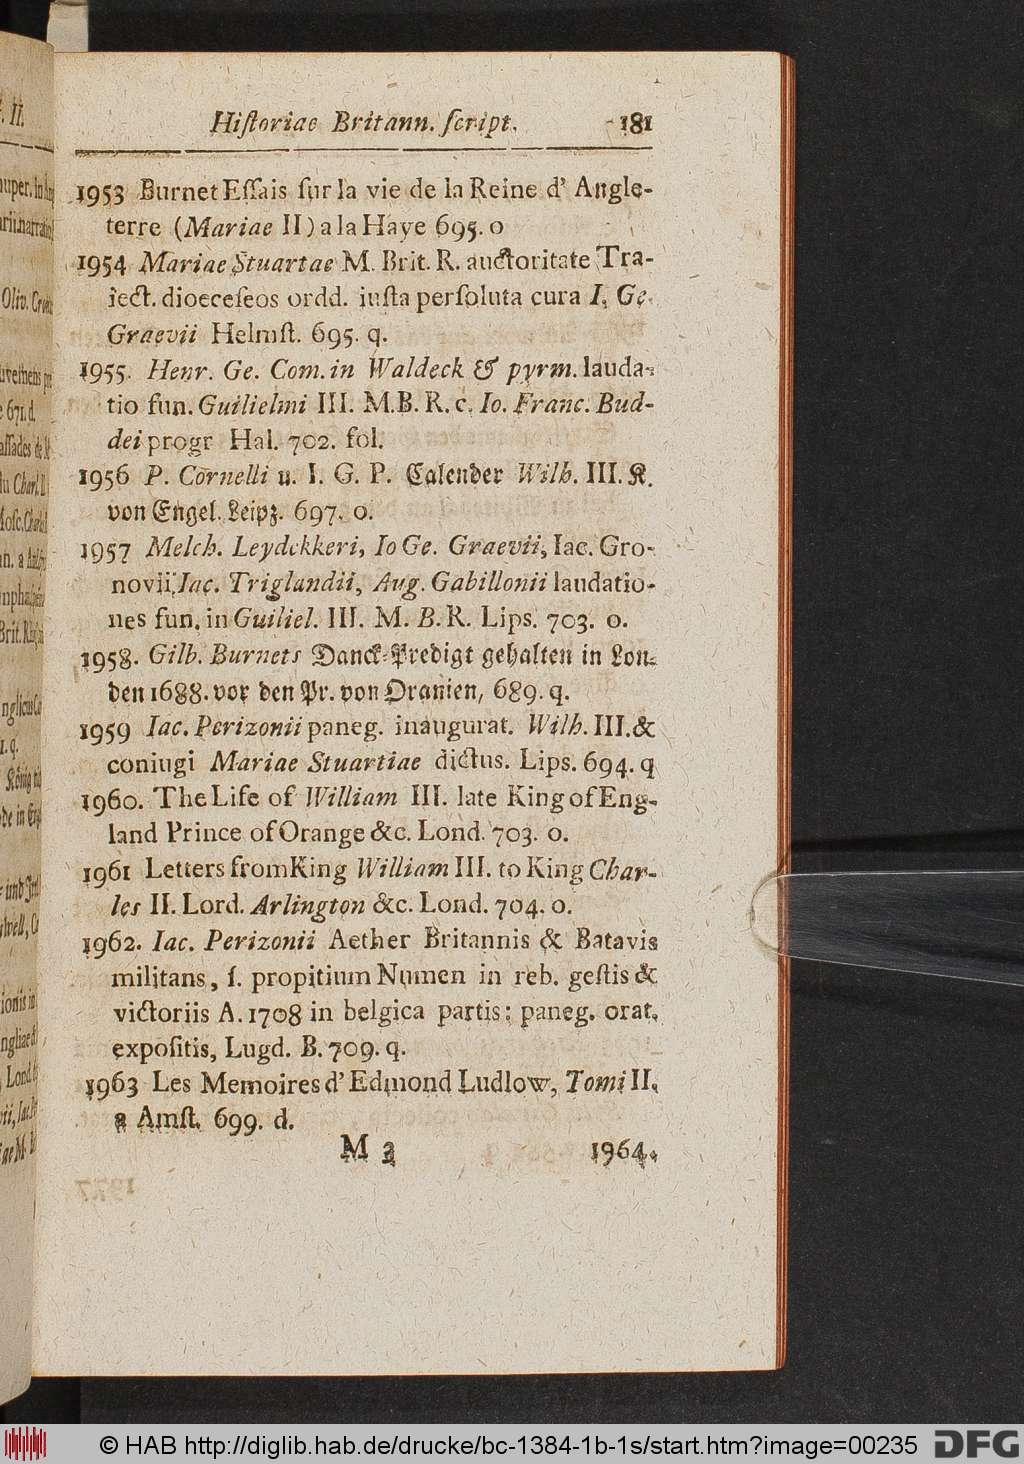 Hiſtoriae Britann. ſcript. 181
1953 Burnet Eſſais ſur la vie de la Reine d' Angle-
terre (Mariae II) a la Haye 695. o
1954 Mariae Stuartae M. Brit. R. auctoritate Tra-
iect. dioeceſeos ordd. iuſta perſoluta cura I. Ge.
Graevii Helmſt. 695. q.
1955. Henr. Ge. Com. in Waldeck & pyrm. lauda-
tio fun. Guilielmi III. M. B. R. c. Io. Franc. Bud-
dei progr Hal. 702. fol.
1956 P. Cornelli u. I. G. P. Calender Wilh. III. K.
von Engel. Leipz. 697. o.
1957 Melch. Leydekkeri, Io Ge. Graevii, Iac. Gro-
novii, Iac. Triglandii, Aug. Gabillonii laudatio-
nes fun. in Guiliel. III. M. B. R. Lips. 703. o.
1958. Gilb. Burnets Danck-Predigt gehalten in Lon-
den 1688. vor den Pr. von Oranien, 689. q.
1959 Iac. Perizonii paneg. inaugurat. Wilh. III. &
coniugi Mariae Stuartiae dictus. Lips. 694. q
1960. The Life of William III. late King of Eng-
land Prince of Orange &c. Lond. 703. o.
1961 Letters from King William III. to King Char-
les II. Lord. Arlington &c. Lond. 704. o.
1962. Iac. Perizonii Aether Britannis & Batavis
militans, ſ. propitium Numen in reb. geſtis &
victoriis A. 1708 in belgica partis; paneg. orat.
expoſitis, Lugd. B. 709. q.
1963 Les Memoires d' Edmond Ludlow, Tomi II.
a Amſt. 699. d.
M 3 1964.
© HAB http://diglib.hab.de/drucke/bc-1384-1b-1s/start.htm?image=00235 DFG